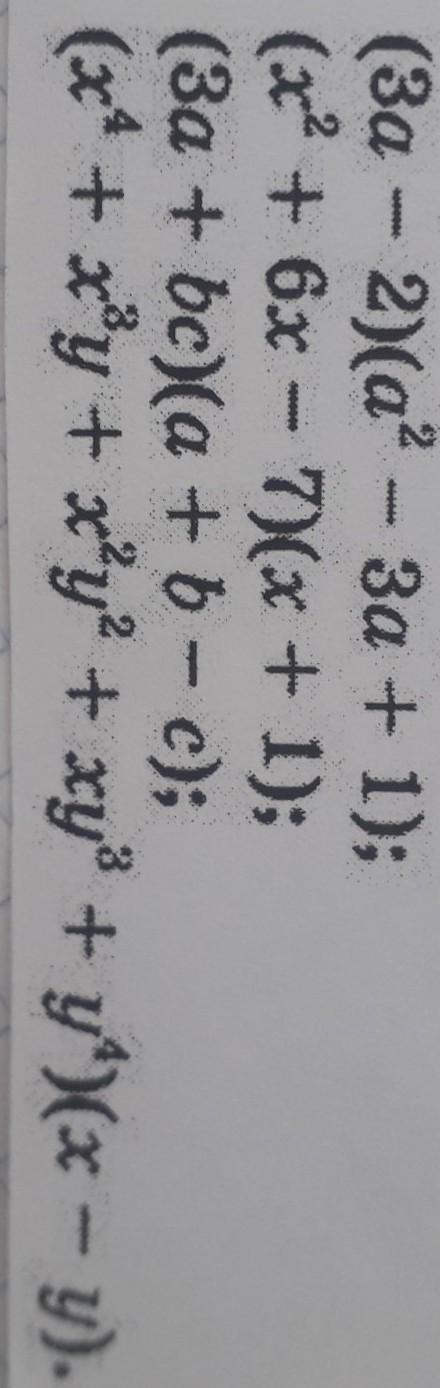 (3a − 2)(a² − 3a + 1);
(x² + 6x − 7)(x + 1);
(3a + bc)(a + b − c);
(x⁴ + x³y + x²y² + xy³ + y⁴)(x − y).